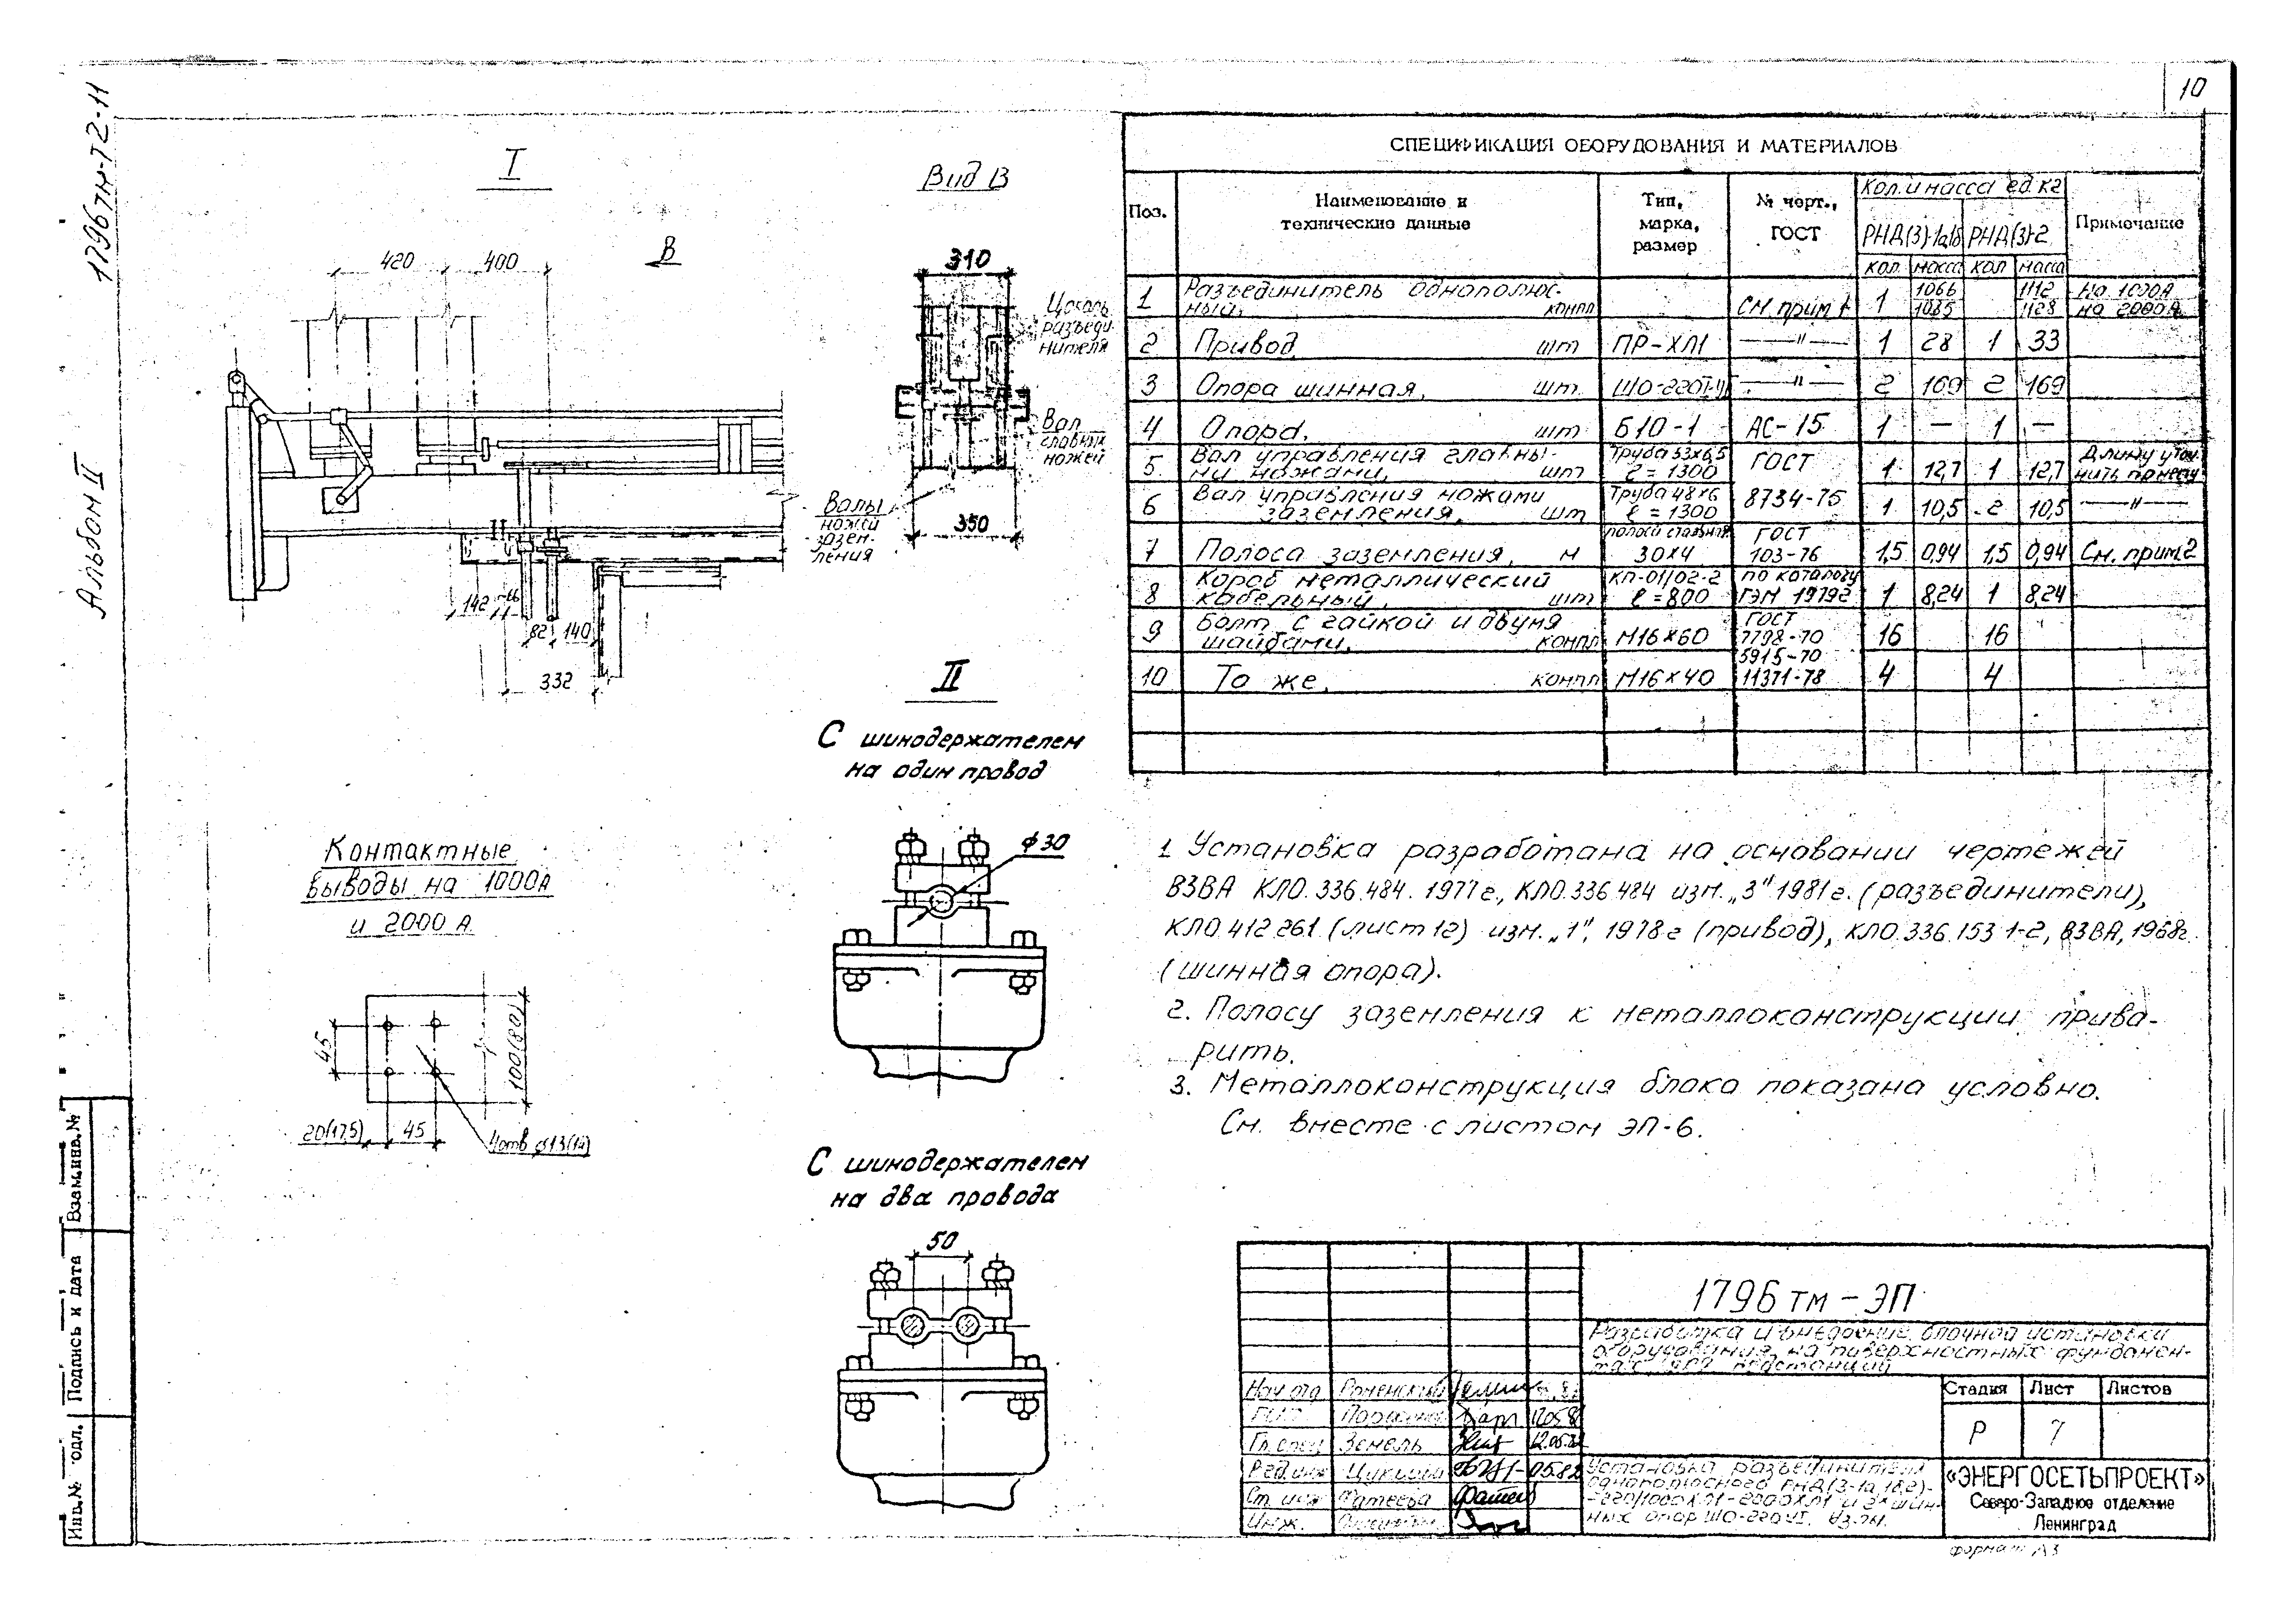 10
1796тм-т2-11
Альбом II
I
Вид В
420
400
В
310
Цоколь
разъеди-
нителя
Вал
главных
ножей
Валы
ножей
зазем-
ления
350
II
142
82
140
332
II
С шинодержателем
на один провод
⌀30
Контактные
выводы на 1000А
и 2000 А
45
100(80)
20(17,5)
45
4отв ⌀13(14)
С шинодержателем
на два провода
50
СПЕЦИФИКАЦИЯ ОБОРУДОВАНИЯ И МАТЕРИАЛОВ
Поз.
Наименование и
технические данные
Тип,
марка,
размер
№ черт.,
ГОСТ
Кол. и масса ед. кг
РНД(З)-1а,1б
РНД(З)-2
Примечание
кол.
масса
кол
масса
1 Разъединитель однополюс-
ный, компл см. прим 1 1 1066 1112 на 1000А
1085 1128 на 2000А
2 Привод шт ПР-ХЛ1 —"— 1 28 1 33
3 Опора шинная, шт. —"— 2 169 2 169
4 Опора. шт Б10-1 АС-15 1 — 1 —
5 Вал управления главны-
ми ножами, шт Труба 53х6,5 ℓ=1300 ГОСТ 1 12,7 1 12,7 Длину уточ-
нить по месту
6 Вал управления ножами
заземления, шт Труба 48х6 ℓ=1300 8734-75 1 10,5 2 10,5 —"—
7 Полоса заземления, м полоса стальная 30х4 ГОСТ 103-76 1,5 0,94 1,5 0,94 См. прим.2
8 Короб металлический
кабельный, шт КП-01/02-2 ℓ=800 по каталогу ГЭМ 19792 1 8,24 1 8,24
9 Болт с гайкой и двумя
шайбами, компл М16х60 ГОСТ 7798-70 16 16
5915-70
10 То же, компл М16х40 11371-78 4 4
1. Установка разработана на основании чертежей
ВЗВА КЛО.336.484. 1977г., КЛО.336.484 изм. „3" 1981г. (разъединители),
КЛО.412.261 (лист 12) изм. „1", 1978г (привод), КЛО.336.153 1-2, ВЗВА, 1968г.
(шинная опора).
2. Полосу заземления к металлоконструкции прива-
рить.
3. Металлоконструкция блока показана условно.
См. вместе с листом ЭП-6.
1796 тм – ЭП
Разработка и внедрение блочной установки
оборудования на поверхностных фундамен-
тах подстанций
Нач. отд. Роменский
ГИП 12.05.82
Гл. спец Земель 12.05.82
Рук. инж 05.82
Ст. инж Фатеева
Инж.
Установка разъединителя
однополюсного РНД(З-1а,1б,2)-
-220/1000ХЛ1-2000ХЛ1 и 2х шин-
ных опор ШО-220 У1. Узлы.
Стадия
Лист
Листов
Р
7
«ЭНЕРГОСЕТЬПРОЕКТ»
Северо-Западное отделение
Ленинград
формат А3
Взам.инв.№
Подпись и дата
Инв.№ подл.